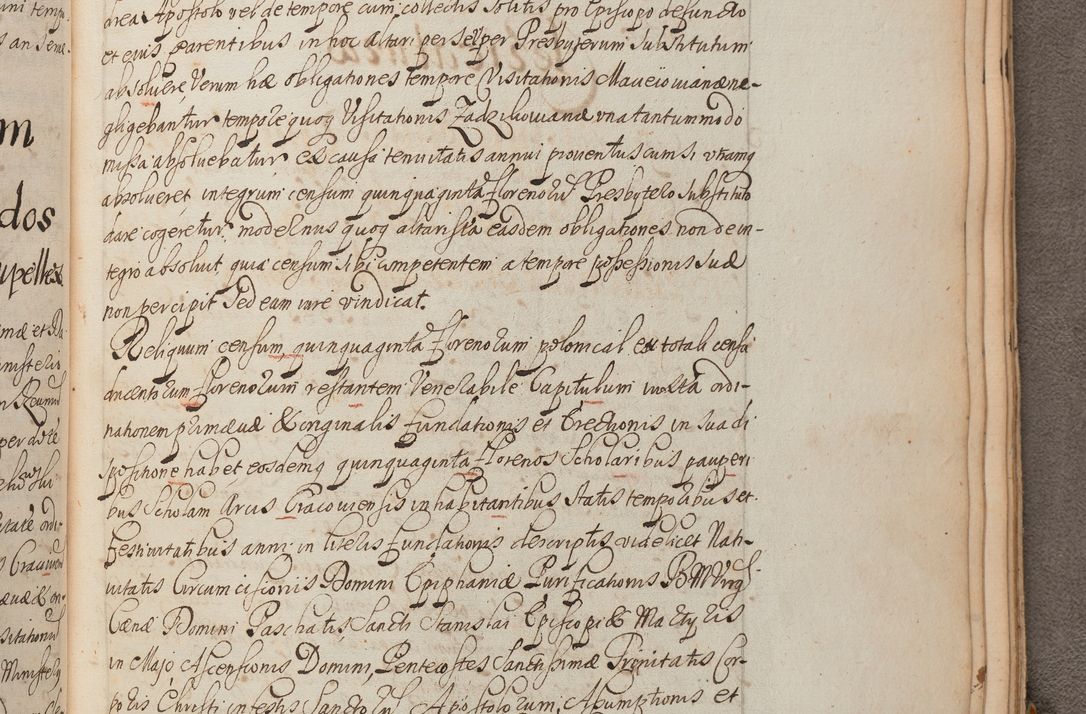 area Apostolo vel de tempore cum collectis solitis pro Episcopo defuncto
et eius parentibus in hoc Altari per se l per Presbyterum substitutum
absolvere, Verum hæ obligationes tempore Visitationis Macieiovianæ ne-
gligebantur tempore quoq Visitationis Zadzikovianæ vna tantummodo
missa absoluebatur ex causa tenuitatis annui prouentus cum si vtramq
absolveret integrum censum quinquaginta florenorū Presbytero substituto
dare cogeretur, modernus quoq altarista easdem obligationes non de in-
tegro absoluit, quia censum sibi competentem a tempore possessionis suæ
non percipit sed eam iure vindicat.
Reliquum censum quinquaginta florenorum polonical ex totali censu
ducentorum florenorum restantem Venerabile Capitulum iuxta ordi-
nationem primæuæ & originalis fundationis et Erectionis in sua di
spositione habet, eosdemq quinquaginta florenos Scholaribus pauperi
bus Scholam Arcis Cracoviensis inhabitantibus statis temporibus et
festiuitatibus anni in literis fundationis descriptis videlicet Nati-
uitatis Circumcisionis Domini Epiphaniæ Purificationis B M Virg
Cænæ Domini Paschatis, Sancti Stanislai Episcopi & Martyris
in Majo, Ascensionis Domini, Pentecostes Sanctissimæ Trinitatis Cor-
poris Christi in festis Sanctorū Apostolorum, Assumptionis et